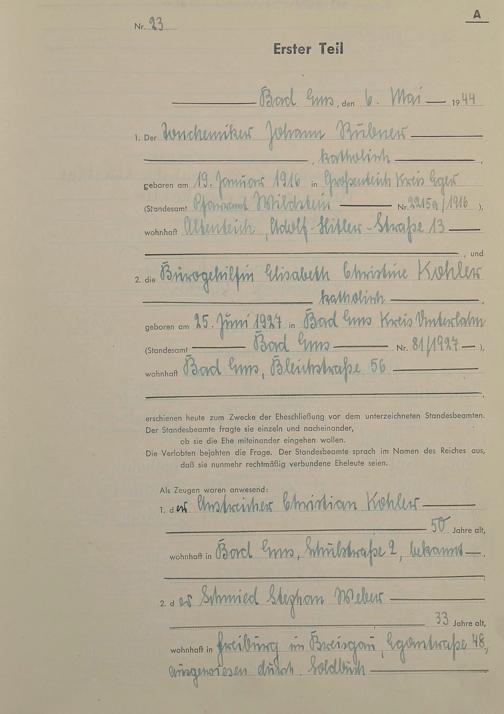 A
Nr. 23
Erster Teil
Bad Ems, den 6. Mai 1944
1. Der Johann Rübner
, katholisch ,
geboren am 19. Januar 1916 in Großenteich Kreis Eger
(Standesamt Pfarramt Wildstein Nr. 2215a/1916 ),
wohnhaft Altenteich, Adolf-Hitler-Straße 13
, und
2. die Bürogehilfin Elisabeth Christine Kohler
, katholisch ,
geboren am 25. Juni 1927 in Bad Ems Kreis Unterlahn
(Standesamt Bad Ems Nr. 81/1927 ),
wohnhaft Bad Ems, Bleichstraße 56
,
erschienen heute zum Zwecke der Eheschließung vor dem unterzeichneten Standesbeamten.
Der Standesbeamte fragte sie einzeln und nacheinander,
ob sie die Ehe miteinander eingehen wollen.
Die Verlobten bejahten die Frage. Der Standesbeamte sprach im Namen des Reiches aus,
daß sie nunmehr rechtmäßig verbundene Eheleute seien.
Als Zeugen waren anwesend:
1. der Anstreicher Christian Kohler
50 Jahre alt,
wohnhaft in Bad Ems, Schulstraße 2, bekannt
,
2. der Schmied Stephan Weber
33 Jahre alt,
wohnhaft in Freiburg im Breisgau, Egonstraße 48,
ausgewiesen durch Soldbuch